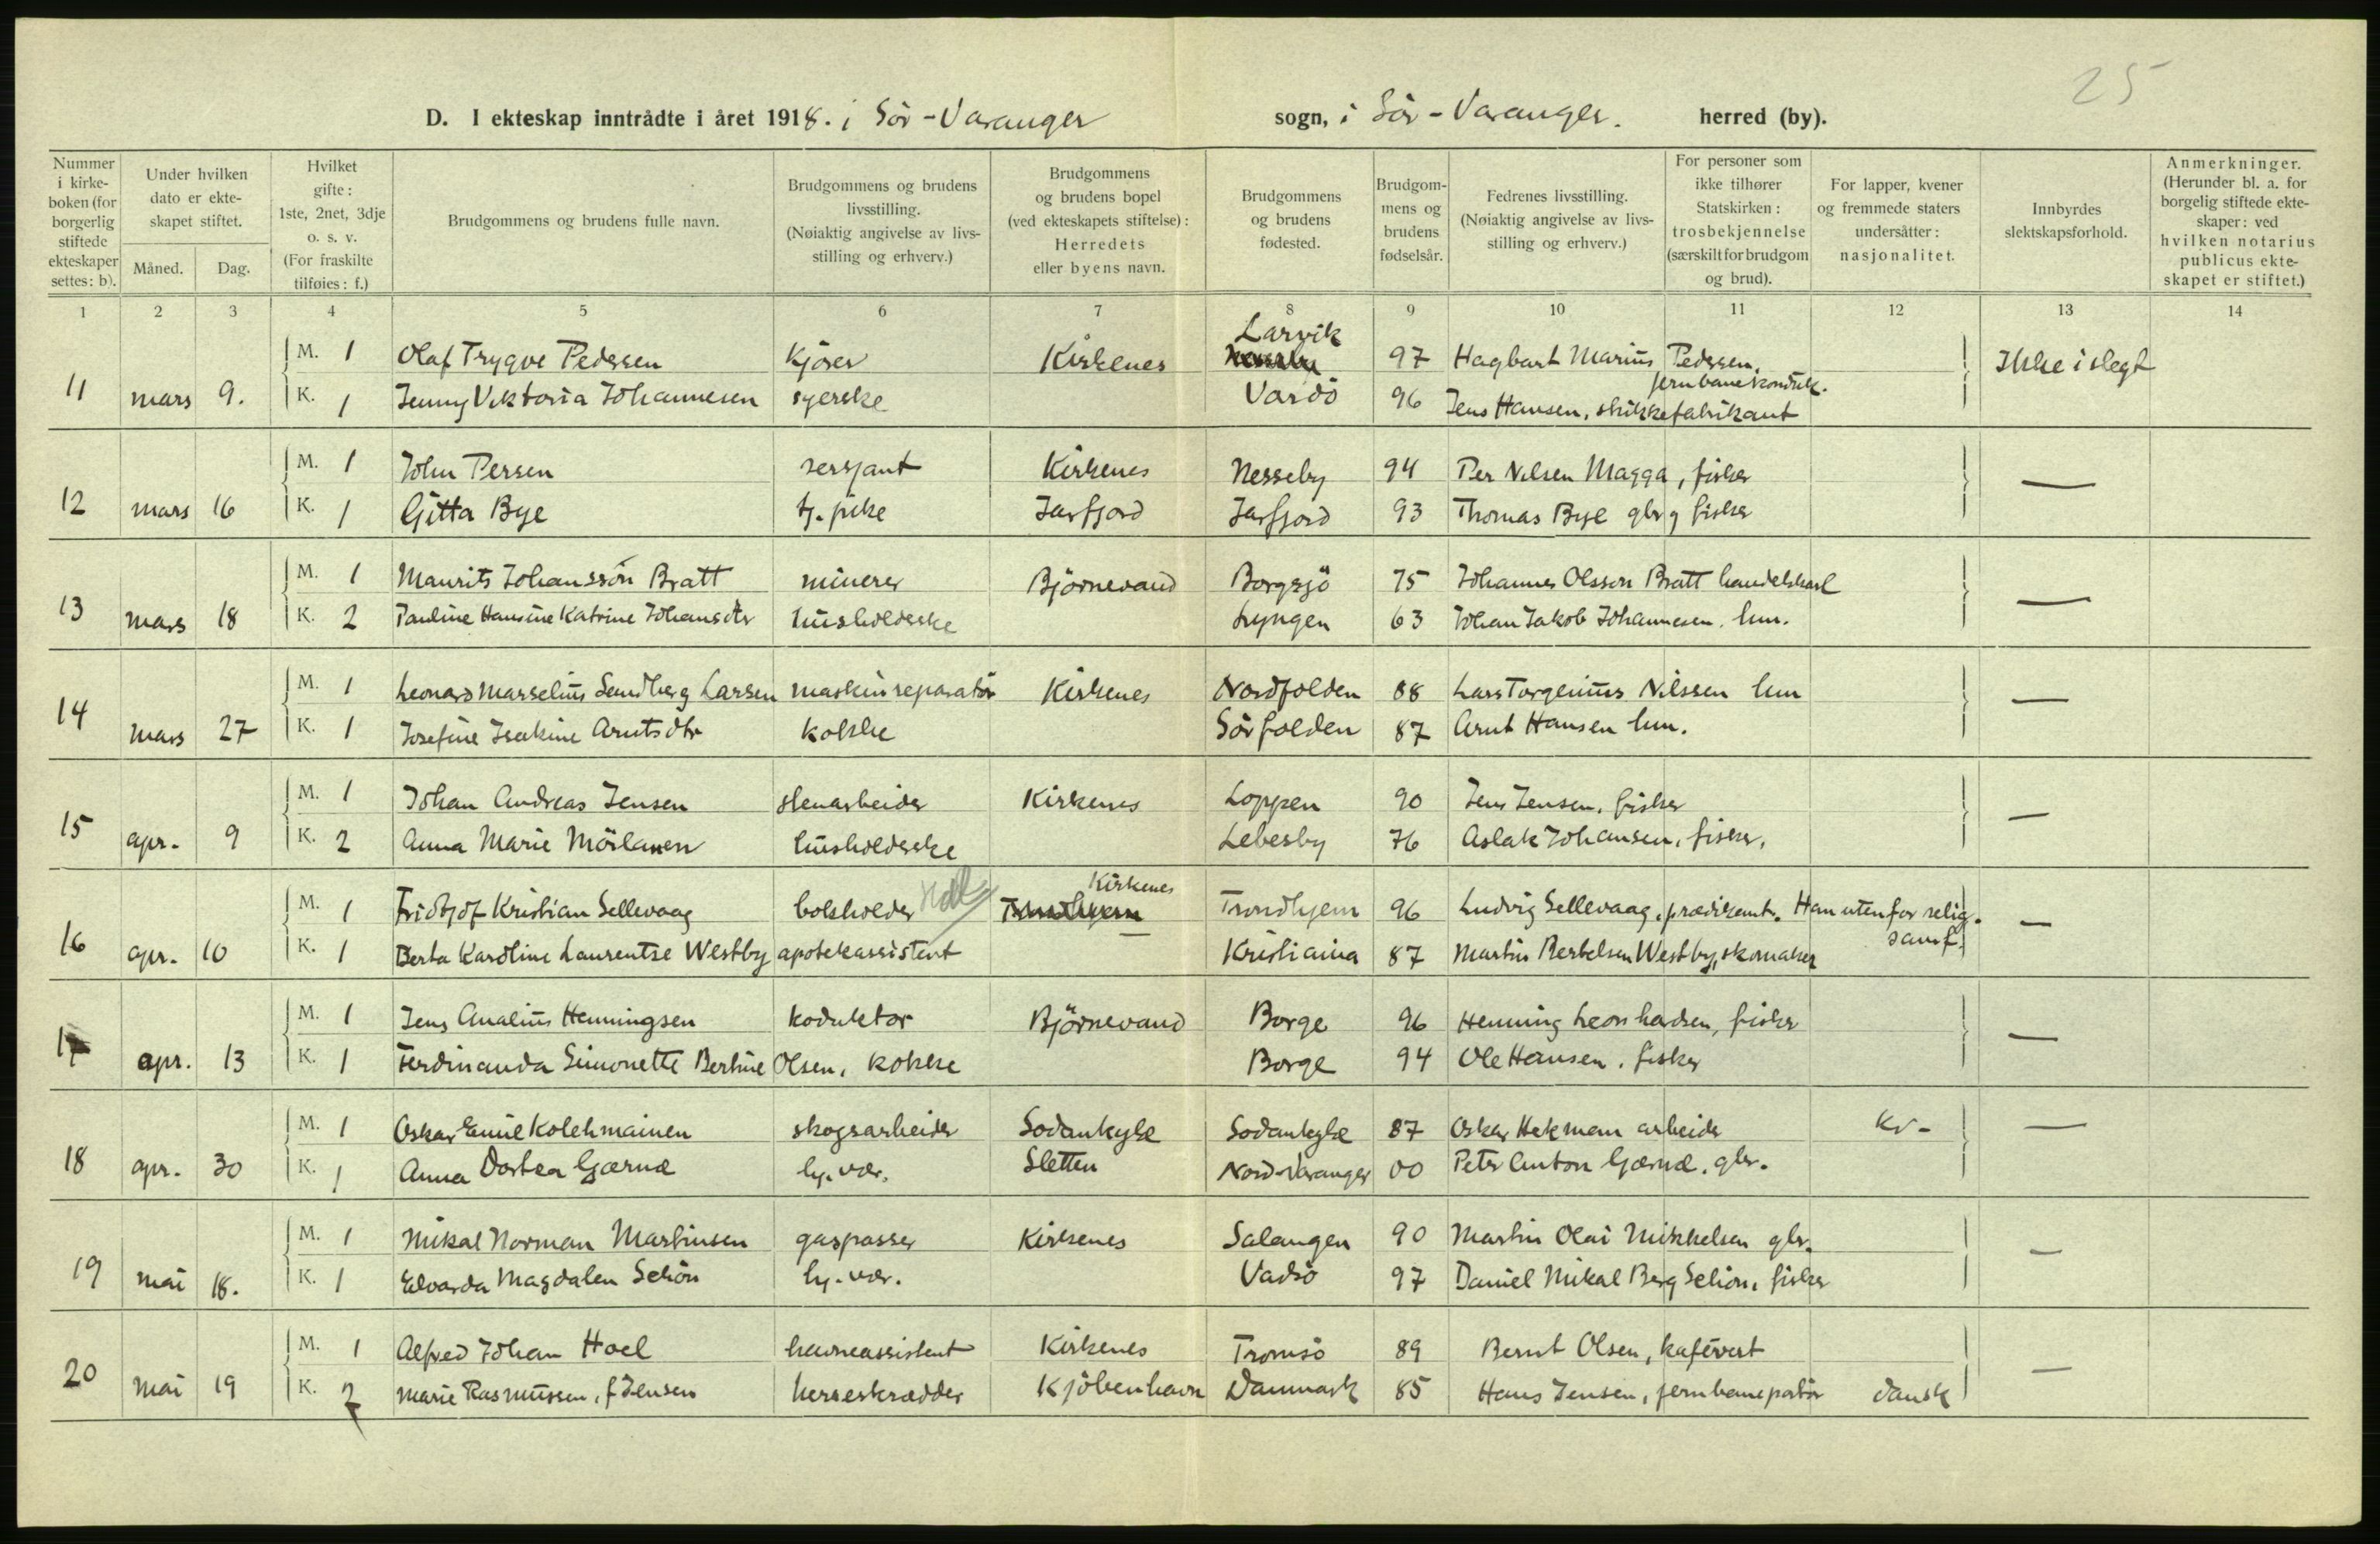 25
D. I ekteskap inntrådte i året 1918. i Sör-Varanger sogn, i Sör-Varanger. herred (by).
Nummer i kirkeboken (for borgerlig stiftede ekteskaper settes: b).
Under hvilken dato er ekteskapet stiftet.
Måned. Dag.
Hvilket gifte: 1ste, 2net, 3dje o. s. v. (For fraskilte tilføies: f.)
Brudgommens og brudens fulle navn.
Brudgommens og brudens livsstilling. (Nøiaktig angivelse av livsstilling og erhverv.)
Brudgommens og brudens bopel (ved ekteskapets stiftelse): Herredets eller byens navn.
Brudgommens og brudens fødested.
Brudgommens og brudens fødselsår.
Fedrenes livsstilling. (Nøiaktig angivelse av livsstilling og erhverv.)
For personer som ikke tilhører Statskirken: trosbekjennelse (særskilt for brudgom og brud).
For lapper, kvener og fremmede staters undersåtter: nasjonalitet.
Innbyrdes slektskapsforhold.
Anmerkninger. (Herunder bl. a. for borgelig stiftede ekteskaper: ved hvilken notarius publicus ekteskapet er stiftet.)
1 2 3 4 5 6 7 8 9 10 11 12 13 14
M. 1 Olaf Trygve Pedersen kjörer Kirkenes Larvik 97 Hagbart Marius Pedersen, jernbanekonduk. Ikke i slegt
11 mars 9. K. 1 Jenny Viktoria Johannesen syerske Vardö 96 Jens Hansen, skikkefabrikant
M. 1 John Persen sersjant Kirkenes Nesseby 94 Per Nilsen Magga, fisker —
12 mars 16 K. 1 Gitta Bye tj. pike Jarfjord Jarfjord 93 Thomas Bye gbr og fisker
M. 1 Maurits Johanssön Bratt minerer Björnevand Borgsjö 75 Johannes Olsson Bratt handelskarl —
13 mars 18 K. 2 Pauline Hansine Katrine Johansdtr husholderske Lyngen 63 Johan Jakob Johannesen, lm.
M. 1 Leonard Marselius Sandberg Larsen maskinreparatör Kirkenes Nordfolden 88 Lars Torgenius Nilssen lm —
14 mars 27 K. 1 Josefine Isakine Arntsdtr kokke Sörfolden 87 Arnt Hansen lm.
M. 1 Johan Andreas Jensen stenarbeider Kirkenes Loppen 90 Jens Jensen, fisker —
15 apr. 9 K. 2 Anna Marie Mörlanen husholderske Lebesby 76 Aslak Johansen, fisker.
M. 1 Fridtjof Kristian Sellevaag bokholder Trondhjem Kirkenes Trondhjem 96 Ludvig Sellevaag, prædikant. Han utenfor relig. samf. —
16 apr. 10 K. 1 Berta Karoline Laurentse Westby apotekassistent Kristiania 87 Martin Bertelsen Westby, skomaker
M. 1 Jens Analius Henningsen koduktor Björnevand Borge 96 Henning Leonhardsen, fisker —
17 apr. 13 K. 1 Ferdinanda Simonette Bertine Olsen, kokke Borge 94 Ole Hansen, fisker
M. 1 Oskar Emil Kolehmainen skogsarbeider Sodankyle Sodankyle 87 Oskar Hekman arbeider kv- —
18 apr. 30 K. 1 Anna Dortea Gærnæ hj. vær. Sletten Nord-Varanger 00 Peter Anton Gærnæ, gbr.
M. 1 Mikal Norman Martinsen gaspasser Kirkenes Salangen 90 Martin Olai Mikkelsen gbr. —
19 mai 18. K. 1 Edvarda Magdalen Schön hj. vær. Vadsö 97 Daniel Mikal Berg Schön, fisker
M. 1 Alfred Johan Hoel havneassistent Kirkenes Tromsö 89 Bernt Olsen, kafévert —
20 mai 19 K. 2 Marie Rasmussen, f Jensen herreskrædder Kjöbenhavn Danmark 85 Hans Jensen, jernbaneportör dansk